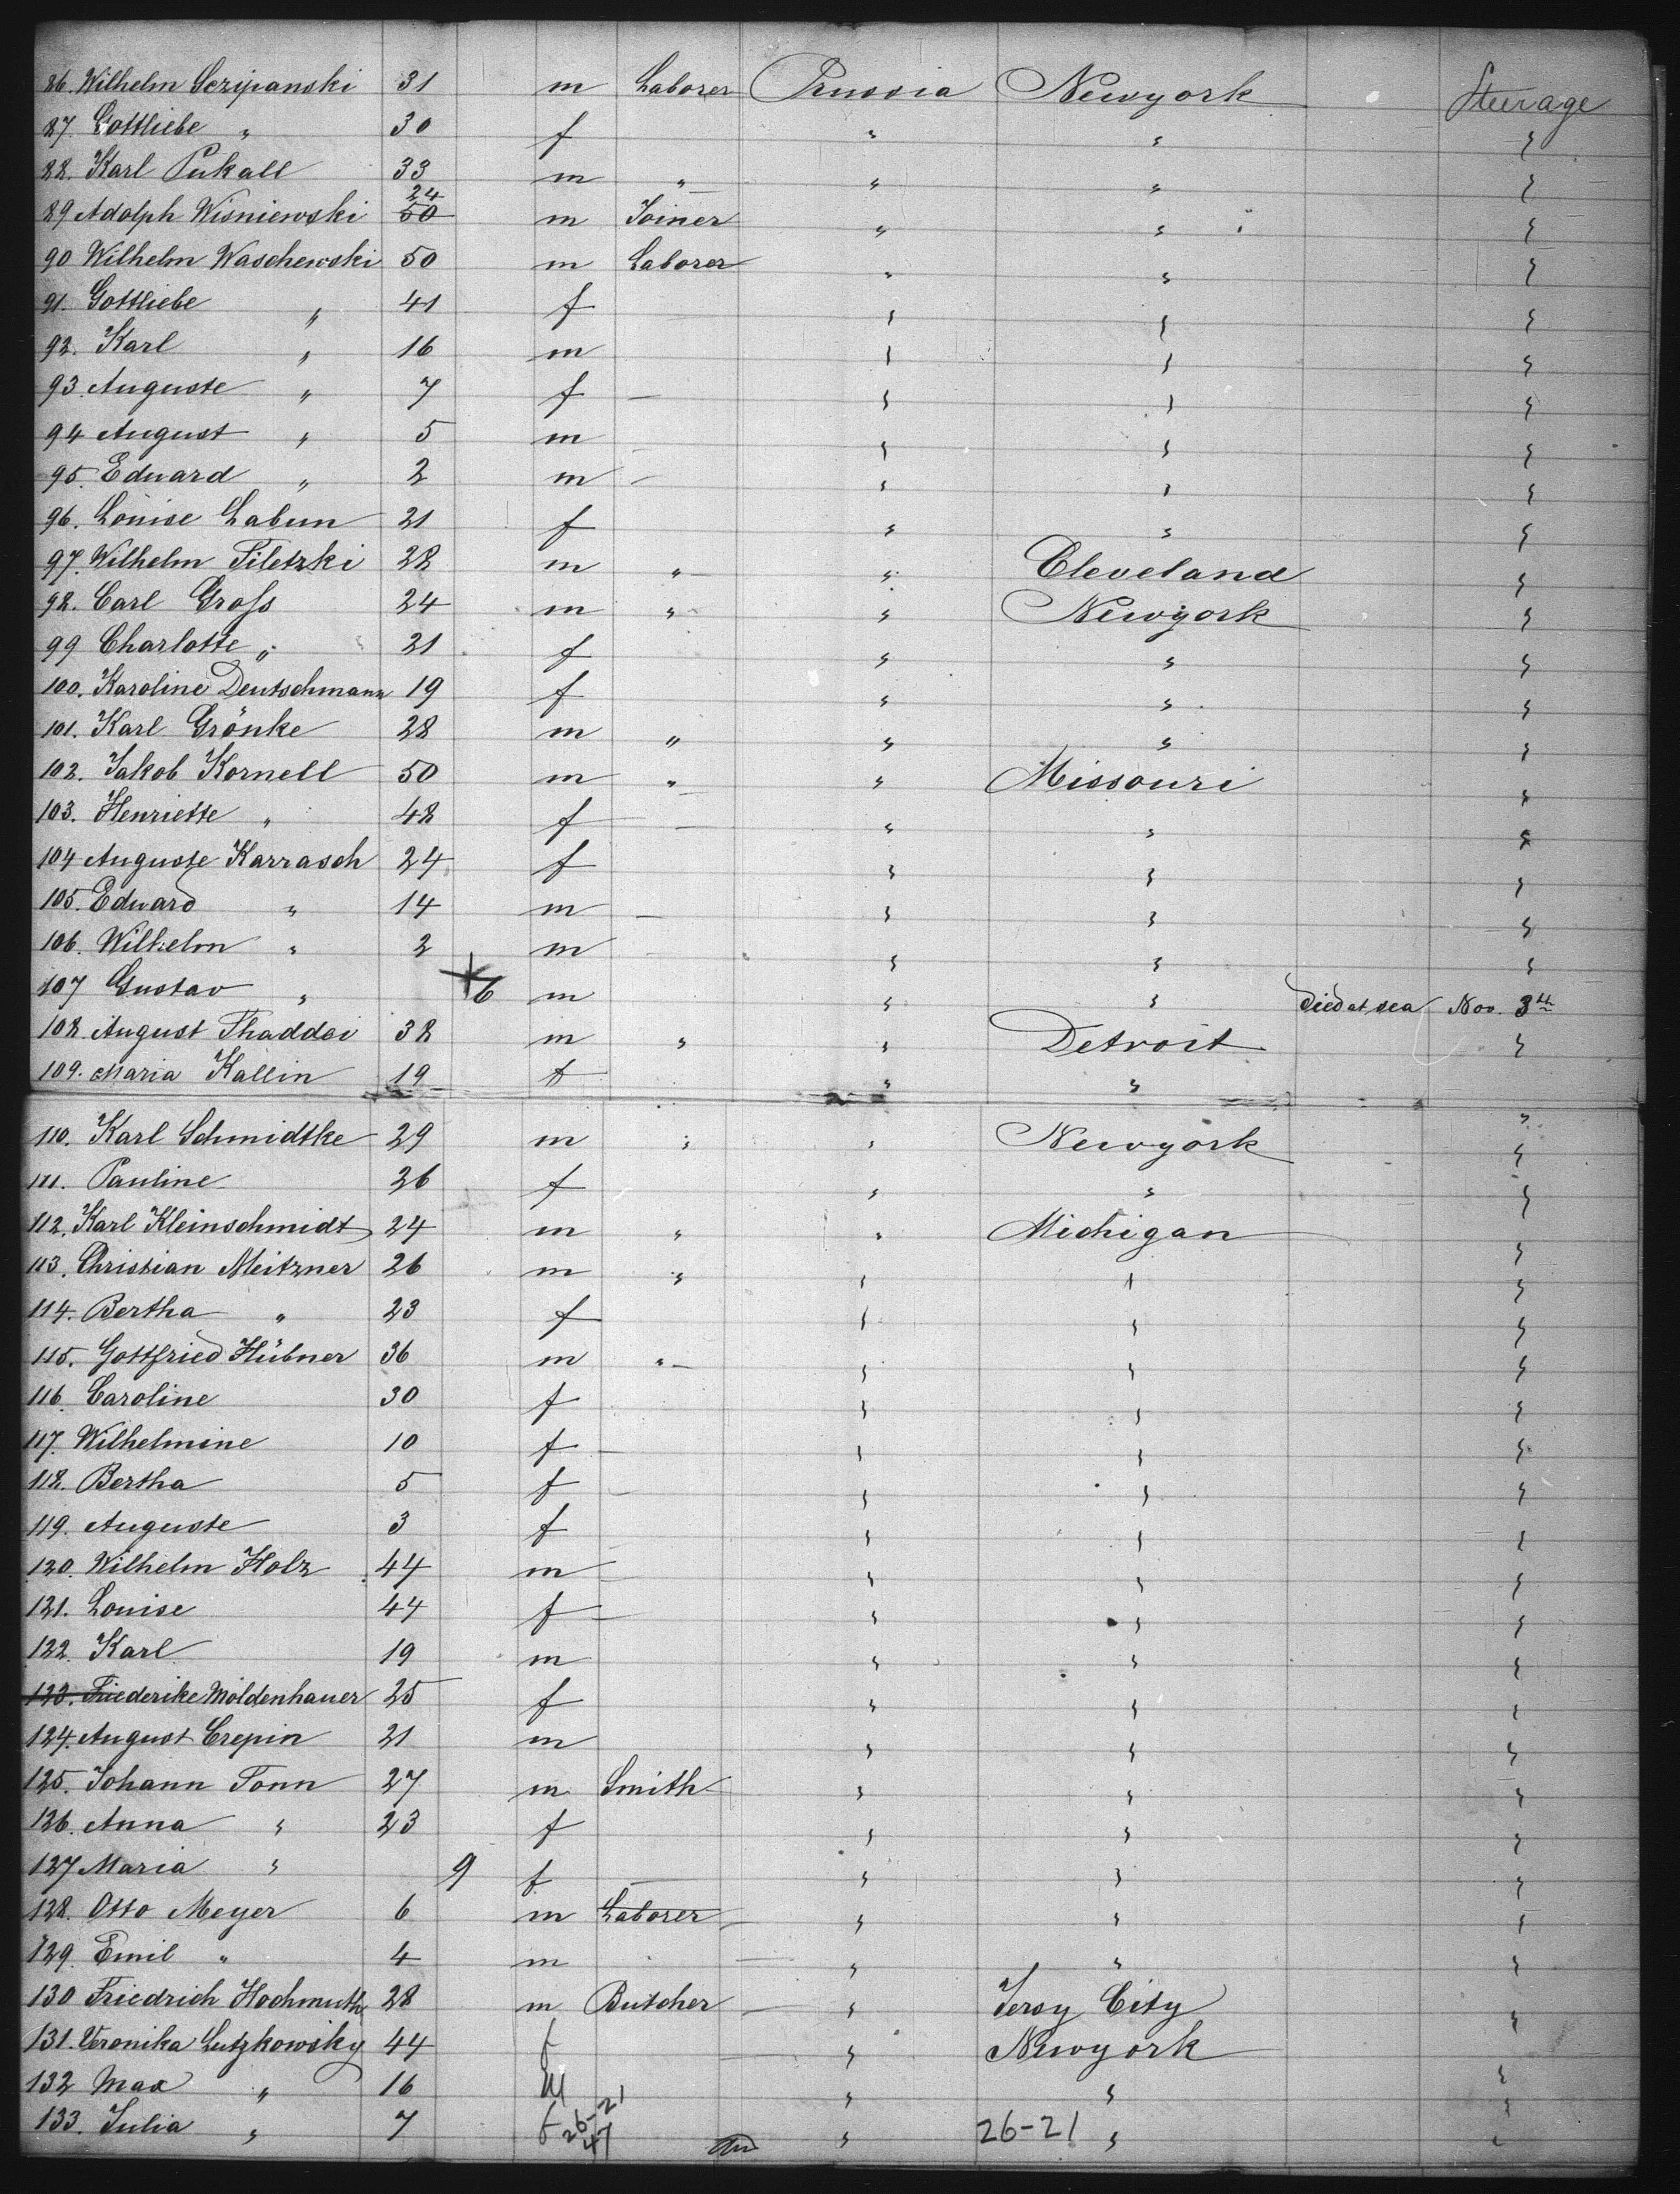 86. Wilhelm Sczipanski 31 m Laborer Prussia Newyork Steerage
87. Gottliebe " 30 f " " "
88. Karl Pukall 33 m " " " "
24
89 Adolph Wisniewski 50 m Joiner " " "
90 Wilhelm Waschewski 50 m Laborer " " "
91. Gottliebe " 41 f " " "
92. Karl " 16 m " " "
93. Auguste " 7 f — " " "
94 August " 5 m " " "
95. Eduard " 2 m - " " "
96. Louise Labun 21 f " " "
97. Wilhelm Filetzki 28 m " " Cleveland "
98. Carl Groß 24 m " " Newyork "
99 Charlotte " 21 f " " "
100. Karoline Deutschmann 19 f " " "
101. Karl Grönke 28 m " " " "
102. Jakob Kornell 50 m " " Missouri "
103. Henriette " 48 f — " " "
104 Auguste Karrasch 24 f " " "
105. Eduard " 14 m — " " "
106. Wilhelm " 2 m " " "
107 Gustav " 6 m " " died at sea Nov. 3th
108. August Thaddei 38 m " " Detroit "
109. Maria Kallin 19 f " " "
110. Karl Schmidtke 29 m " " Newyork "
111. Pauline 26 f " " "
112. Karl Kleinschmidt 24 m " " Michigan "
113. Christian Meitzner 26 m " " " "
114. Bertha " 23 f " " "
115. Gottfried Hübner 36 m " " " "
116. Caroline 30 f " " "
117. Wilhelmine 10 f — " " "
118. Bertha 5 f — " " "
119. Auguste 3 f " " "
120. Wilhelm Holz 44 m " " "
121. Louise 44 f — " " "
122. Karl 19 m " " "
123. Friederike Moldenhauer 25 f " " "
124. August Crepin 21 m " " "
125. Johann Tonn 27 m Smith " " "
126. Anna " 23 f " " "
127 Maria " 9 f — " " "
128. Otto Meyer 6 m Laborer " " "
129. Emil " 4 m — " " "
130 Friedrich Hochmuth 28 m Butcher — " Jersy City "
131. Veronika Lutzkowsky 44 f " Newyork
132 Max " 16 M " " "
133. Julia " 7 f " " "
26-21
47
26-21